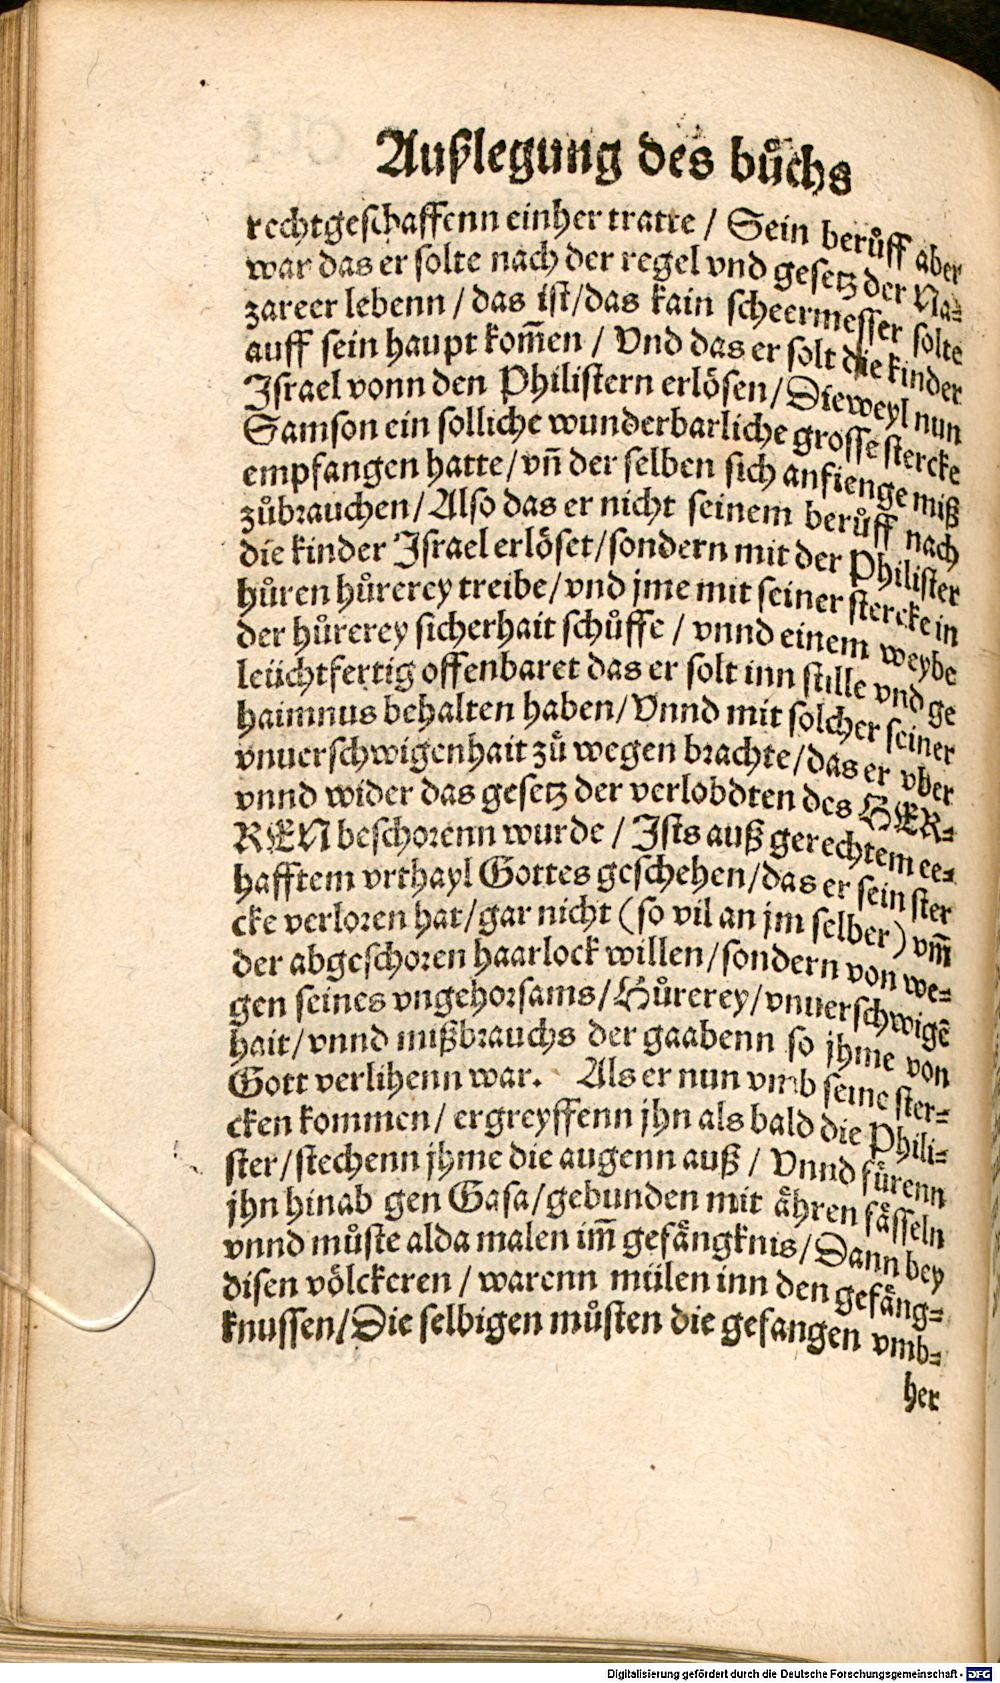 Außlegung des bůchs
rechtgeschaffenn einher tratte / Sein berůff aber
war das er solte nach der regel vnd gesetz der Na⸗
zareer lebenn / das ist/das kain scheermesser solte
auff sein haupt kom̃en / Vnd das er solt die kinder
Israel vonn den Philistern erlösen/Dieweyl nun
Samson ein solliche wunderbarliche grosse stercke
empfangen hatte/vñ der selben sich anfienge miß
zůbrauchen/Also das er nicht seinem berůff nach
die kinder Israel erlöset/sondern mit der Philister
hůren hůrerey treibe/vnd jme mit seiner stercke in
der hůrerey sicherhait schůffe / vnnd einem weybe
leüchtfertig offenbaret das er solt inn stille vnd ge
haimnus behalten haben/Vnnd mit solcher seiner
vnuerschwigenhait zů wegen brachte/das er vber
vnnd wider das gesetz der verlobdten des HER⸗
REN beschorenn wurde / Ists auß gerechtem ee⸗
hafftem vrthayl Gottes geschehen/das er sein ster
cke verloren hat/gar nicht (so vil an jm selber) vm̃
der abgeschoren haarlock willen/sondern von we⸗
gen seines vngehorsams/Hůrerey/vnuerschwigẽ
hait/vnnd mißbrauchs der gaabenn so jhme von
Gott verlihenn war. Als er nun vmb seine ster⸗
cken kommen/ ergreyffenn jhn als bald die Phili⸗
ster/stechenn jhme die augenn auß / Vnnd fůrenn
jhn hinab gen Gasa/gebunden mit aͤhren faͤsseln
vnnd můste alda malen im̃ gefaͤngknis/Dann bey
disen völckeren / warenn mülen inn den gefaͤng⸗
knussen/Die selbigen můsten die gefangen vmb⸗
her
Digitalisierung gefördert durch die Deutsche Forschungsgemeinschaft - DFG